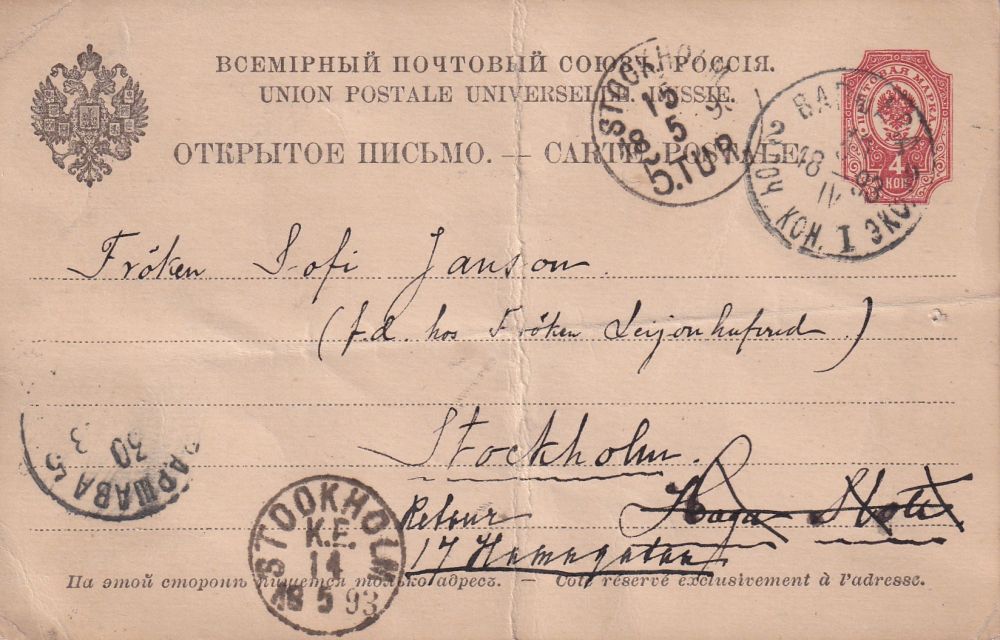 ВСЕМІРНЫЙ ПОЧТОВЫЙ СОЮЗЪ. РОССІЯ.
UNION POSTALE UNIVERSELLE. RUSSIE.
ОТКРЫТОЕ ПИСЬМО. — CARTE POSTALE.
ПОЧТОВАЯ МАРКА
4 КОП
STOCKHOLM
15
5
18 93
5.TUR
18
IV
93
I
Fröken Sofi Janson
(f.d. hos Fröken Leijonhufvud)
Stockholm.
Haga Slott
Retour
17 Hamngatan
ВАРШАВА 5
30
3
STOCKHOLM
K.E.
14
5 93
На этой сторонѣ пишется только адресъ. — Coté réservé exclusivement à l'adresse.